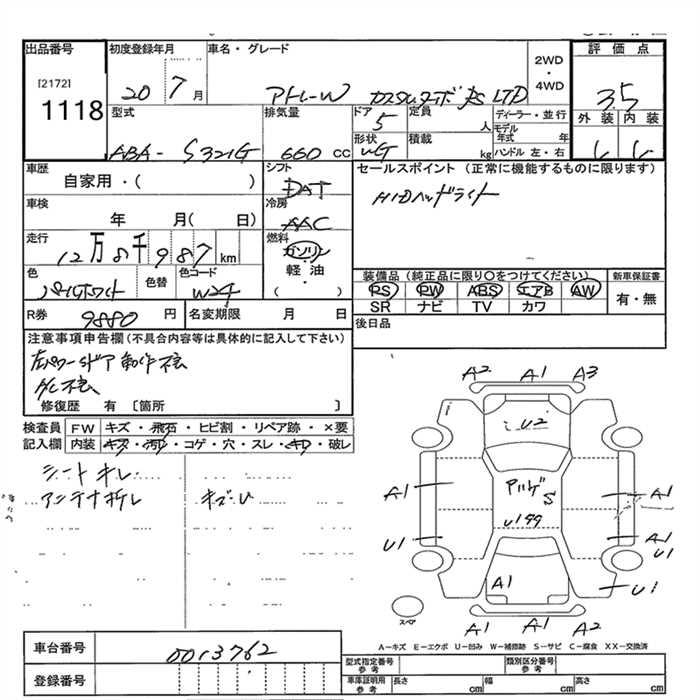 出品番号 初度登録年月 車名・グレード 2WD・4WD 評価点
[2172]
1118
20 7月 アトレーW カスタムターボ RS LTD 3.5
型式 排気量 ドア 定員 ディーラー・並行 外装 内装
5 人 モデル年式 年
ABA- S321G 660 CC 形状 積載 kg ハンドル 左・右
車歴 シフト セールスポイント (正常に機能するものに限ります)
自家用・( ) DAT HIDヘッドライト
車検 冷房
年 月( 日) AAC
走行 燃料
12万8千987km ガソリン
軽油
( )
色 色替 色コード 装備品 (純正品に限り○をつけてください) 新車保証書
パールホワイト W24 PS PW ABS エアB AW 有・無
SR ナビ TV カワ
R券 9880円 名変期限 月 日 後日品
注意事項申告欄(不具合内容等は具体的に記入して下さい)
左パワースドア 動作不良
A/C不良
修復歴 有 [箇所 ]
検査員 FW キズ・飛石・ヒビ割・リペア跡・×要
記入欄 内装 キズ・汚れ・コゲ・穴・スレ・キレ・破レ
シートキレ
アンテナ折レ キズ・U
A2 A1 A3
U2
A1 アルゲ S A1
U199
U1 A1 U1
A1 U1
A1 A1 A2
スペア
A-キズ E-エクボ U-凹み W-補修跡 S-サビ C-腐食 XX-交換済
車台番号 0013762
登録番号
型式指定番号 参考 類別区分番号 参考
車庫証明用 参考 長さ cm 幅 cm 高さ cm